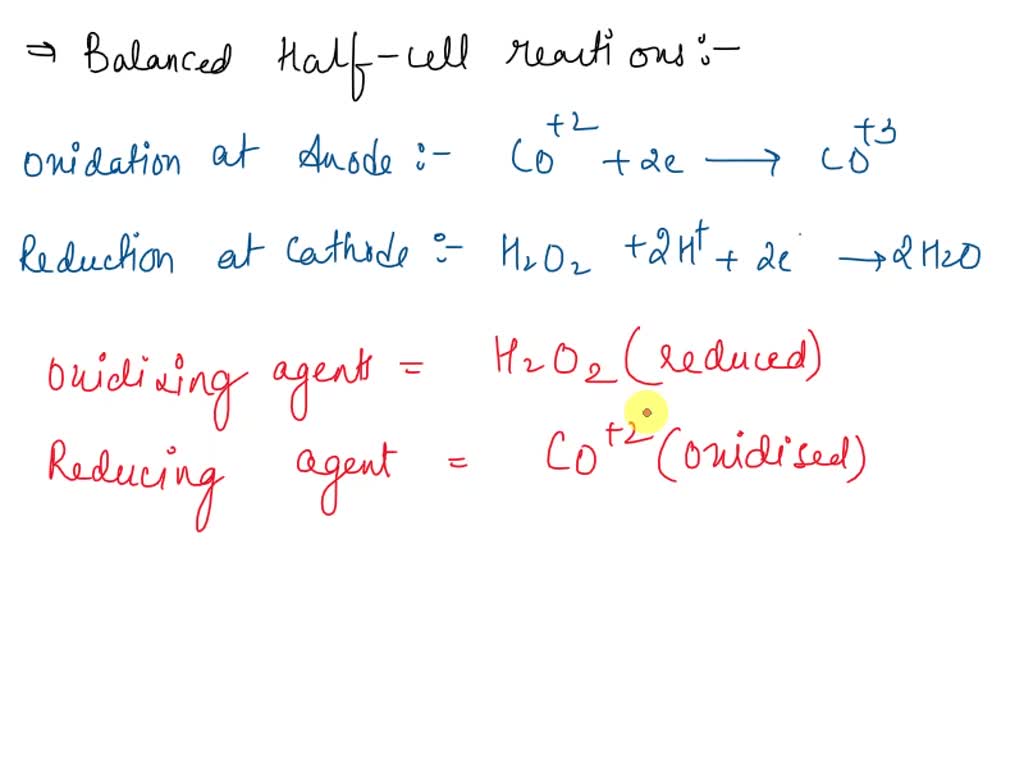 ⇒ Balanced Half-cell reactions:-
Oxidation at Anode:- Co+2 + 2e → Co+3
Reduction at Cathode:- H2O2 + 2H+ + 2e → 2H2O
Oxidizing agent = H2O2 (reduced)
Reducing agent = Co+2 (oxidised)